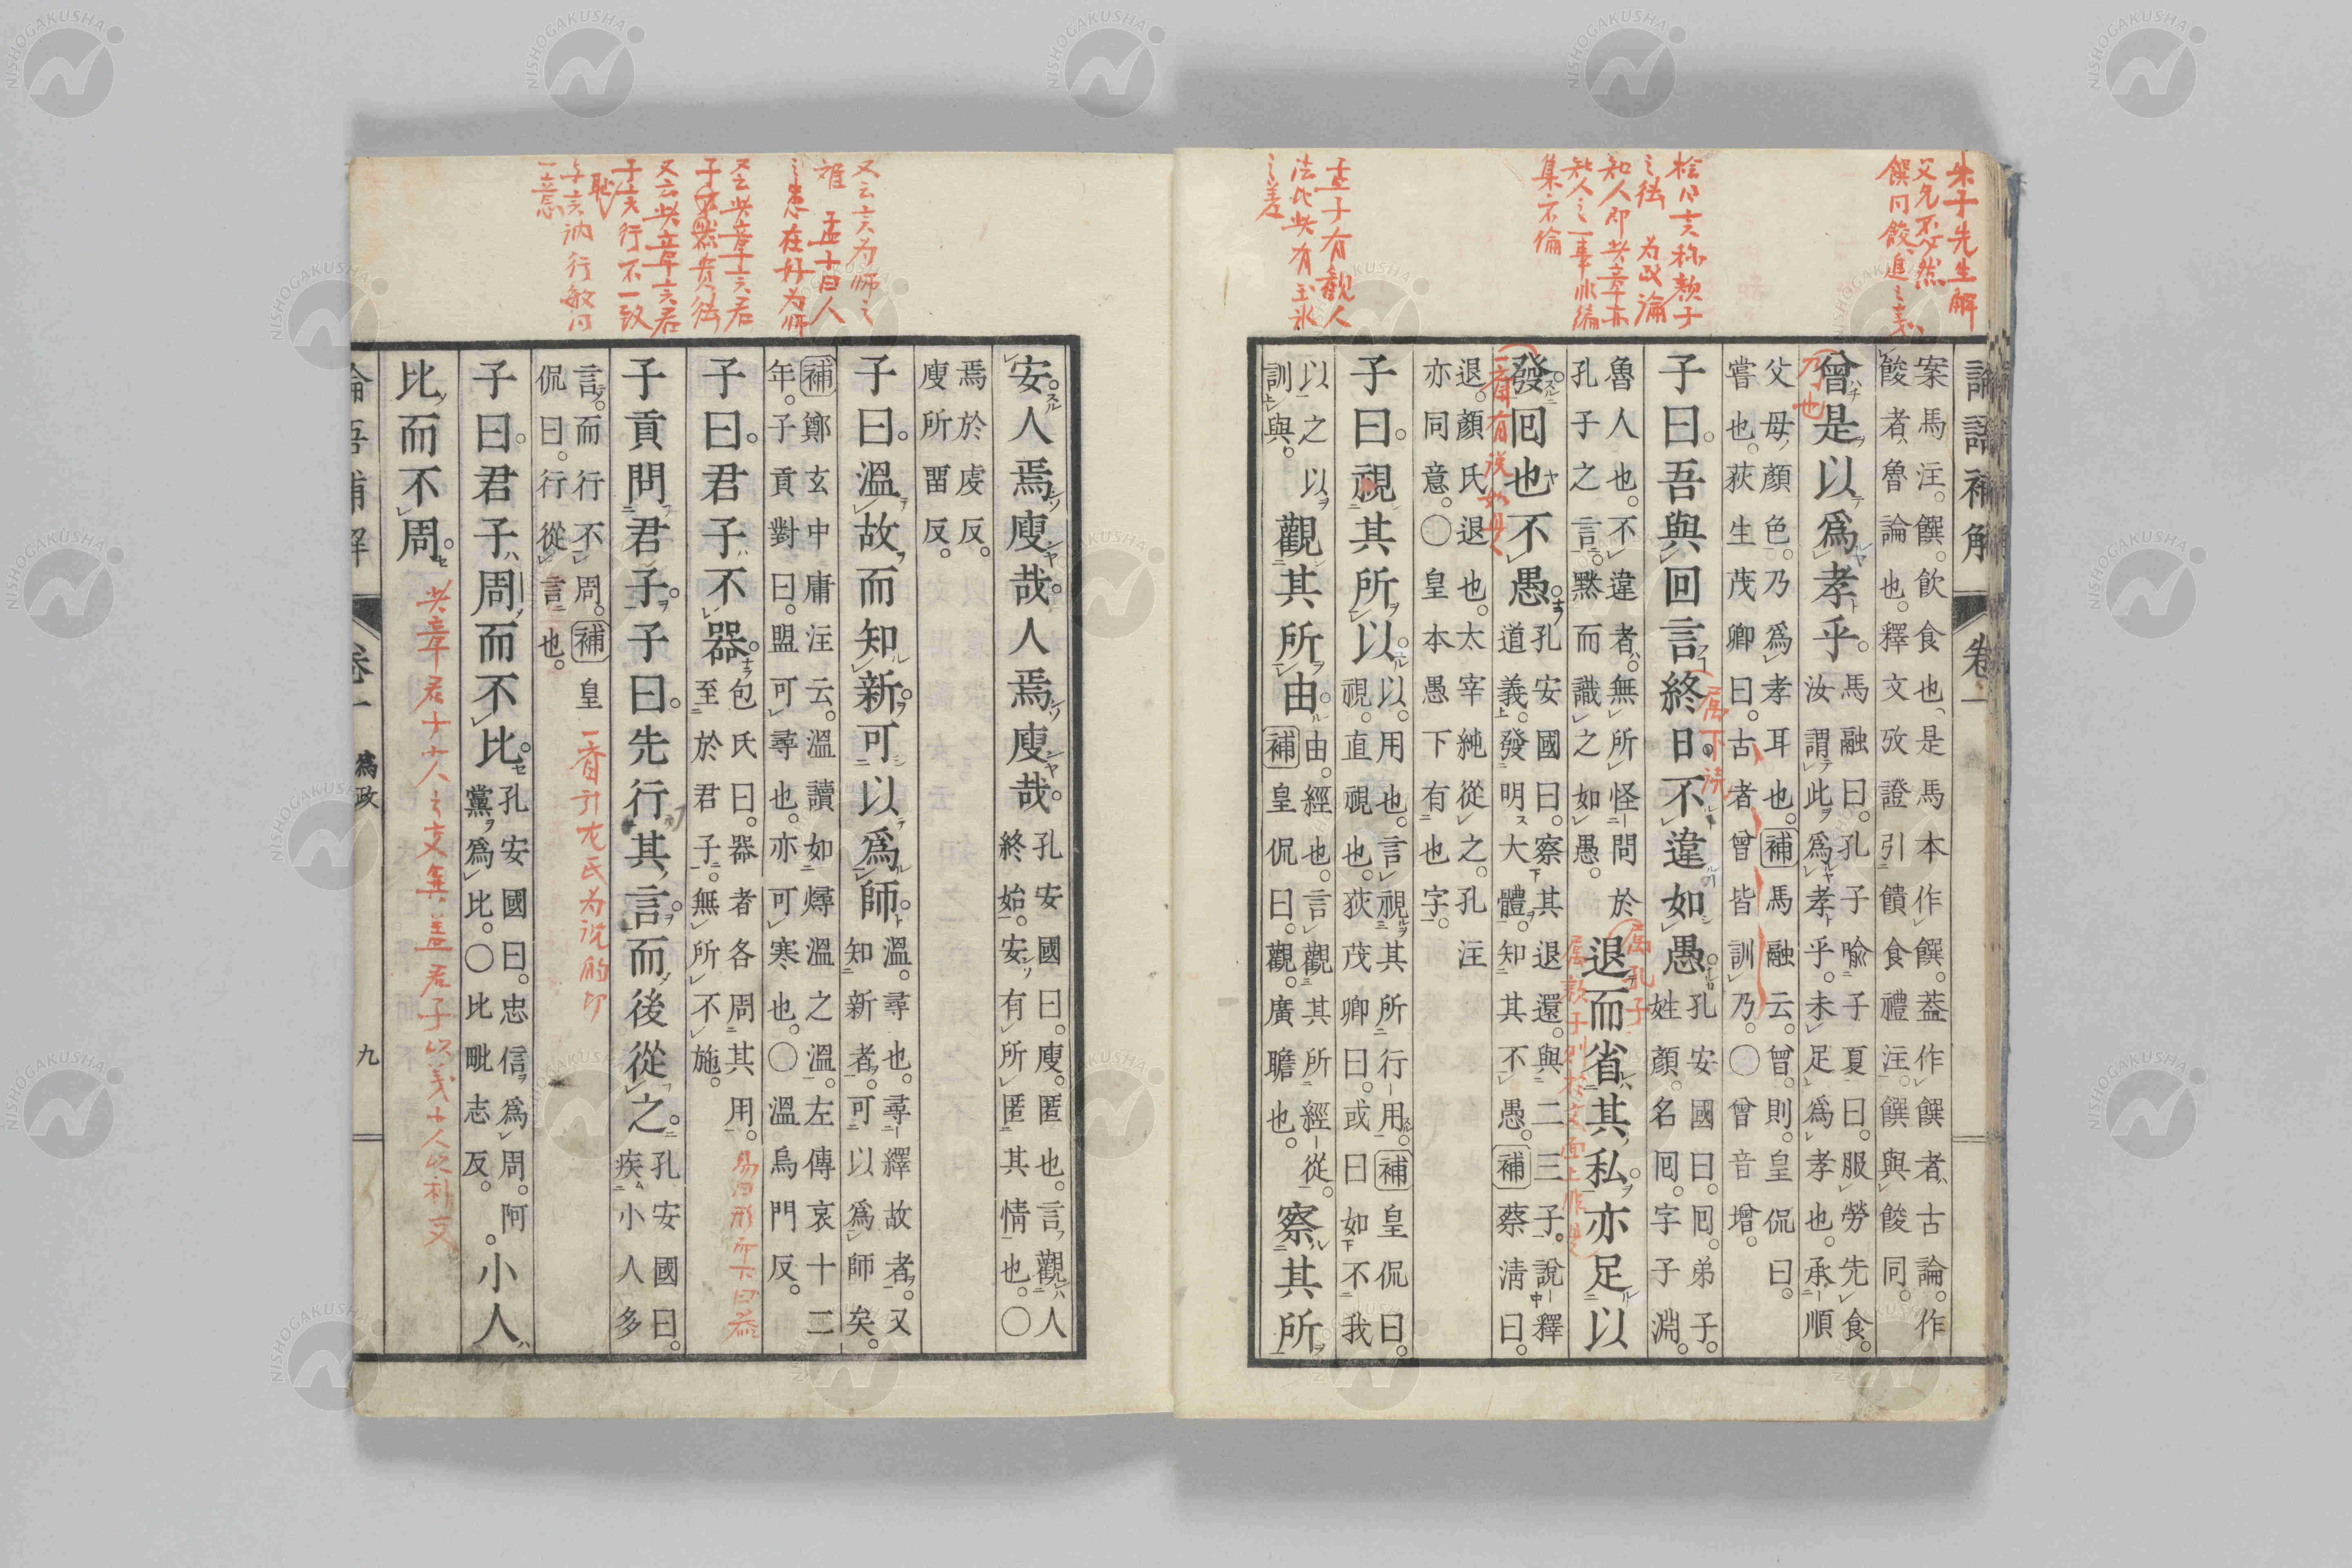 論語補解
卷一
案馬注。饌。飲食也、是馬本作饌。葢作饌者、古論。作
餕者、魯論也。釋文攷證引饋食禮注。饌與餕同。
曾是以爲孝乎。馬融曰。孔子喩子夏曰。服勞先食。
汝謂此爲孝乎。未足爲孝也。承順
父母顏色。乃爲孝耳也。補馬融云。曾。則。皇侃曰。
嘗也。荻生茂卿曰。古者曾皆訓乃。〇曾音增。
子曰。吾與回言終日。不違如愚。孔安國曰。回。弟子。
姓顏。名回。字子淵。
魯人也。不違者。無所怪問於
孔子之言。黙而識之如愚。
退而省其私。亦足以
發。回也不愚。孔安國曰。察其退還。與二三子。說釋
道義。發明大體。知其不愚。補蔡淸曰。
退。顏氏退也。太宰純從之。孔注
亦同意。〇皇本愚下有也字。
子曰。視其所以。以。用也。言視其所行用。補皇侃曰。
視。直視也。荻茂卿曰。或曰如不我
以之以。
訓與。
觀其所由。由。經也。言觀其所經從。
補皇侃曰。觀。廣瞻也。
察其所
安。人焉廋哉。人焉廋哉。孔安國曰。廋。匿也。言觀人
終始。安有所匿其情也。〇
焉於虔反。
廋所畱反。
子曰。溫故而知新。可以爲師。溫。尋也。尋繹故者。又
知新者。可以爲師矣。
補鄭玄中庸注云。溫讀如燖溫之溫。左傳哀十二
年。子貢對曰。盟可尋也。亦可寒也。〇溫烏門反。
子曰。君子不器。包氏曰。器者各周其用。
至於君子。無所不施。
易曰形而下曰器
子貢問君子。子曰。先行其言。而後從之。孔安國曰。
疾小人多
言。而行不周。補皇
侃曰。行從言也。
子曰。君子周而不比。孔安國曰。忠信爲周。阿
黨爲比。〇比毗志反。
小人
比而不周。
論語補解
卷一
爲政
九
朱子先生解
饌同餕
乃也
属下読
属孔子
一本有説如毋
孟子有觀人
法比此有玉氷
之差
又云言为師之
难 孟子曰人
之患在好为師
又云此章言君
又云此章言君
子言行不一致
恥
与言訥行敏同
一意